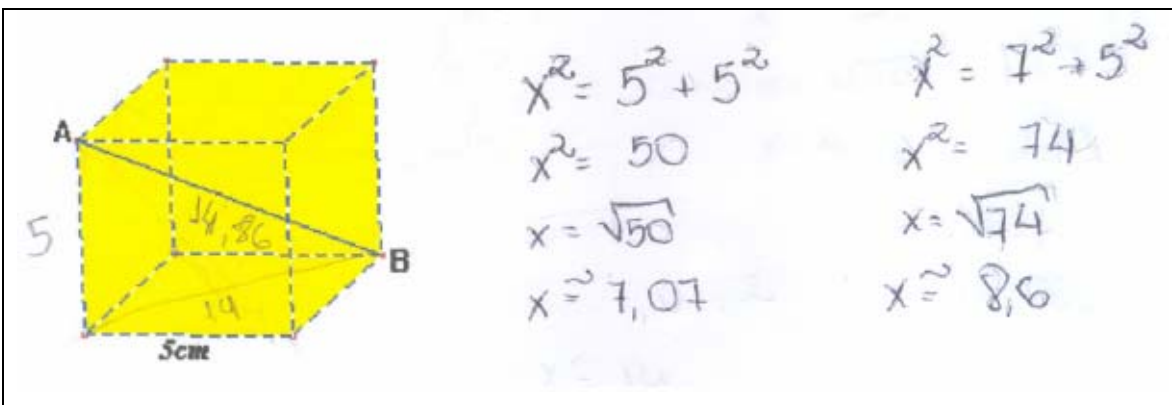 A
5
14,86
B
14
5cm
x² = 5² + 5²
x² = 50
x = √50
x ≅ 7,07
x² = 7² + 5²
x² = 74
x = √74
x ≅ 8,6